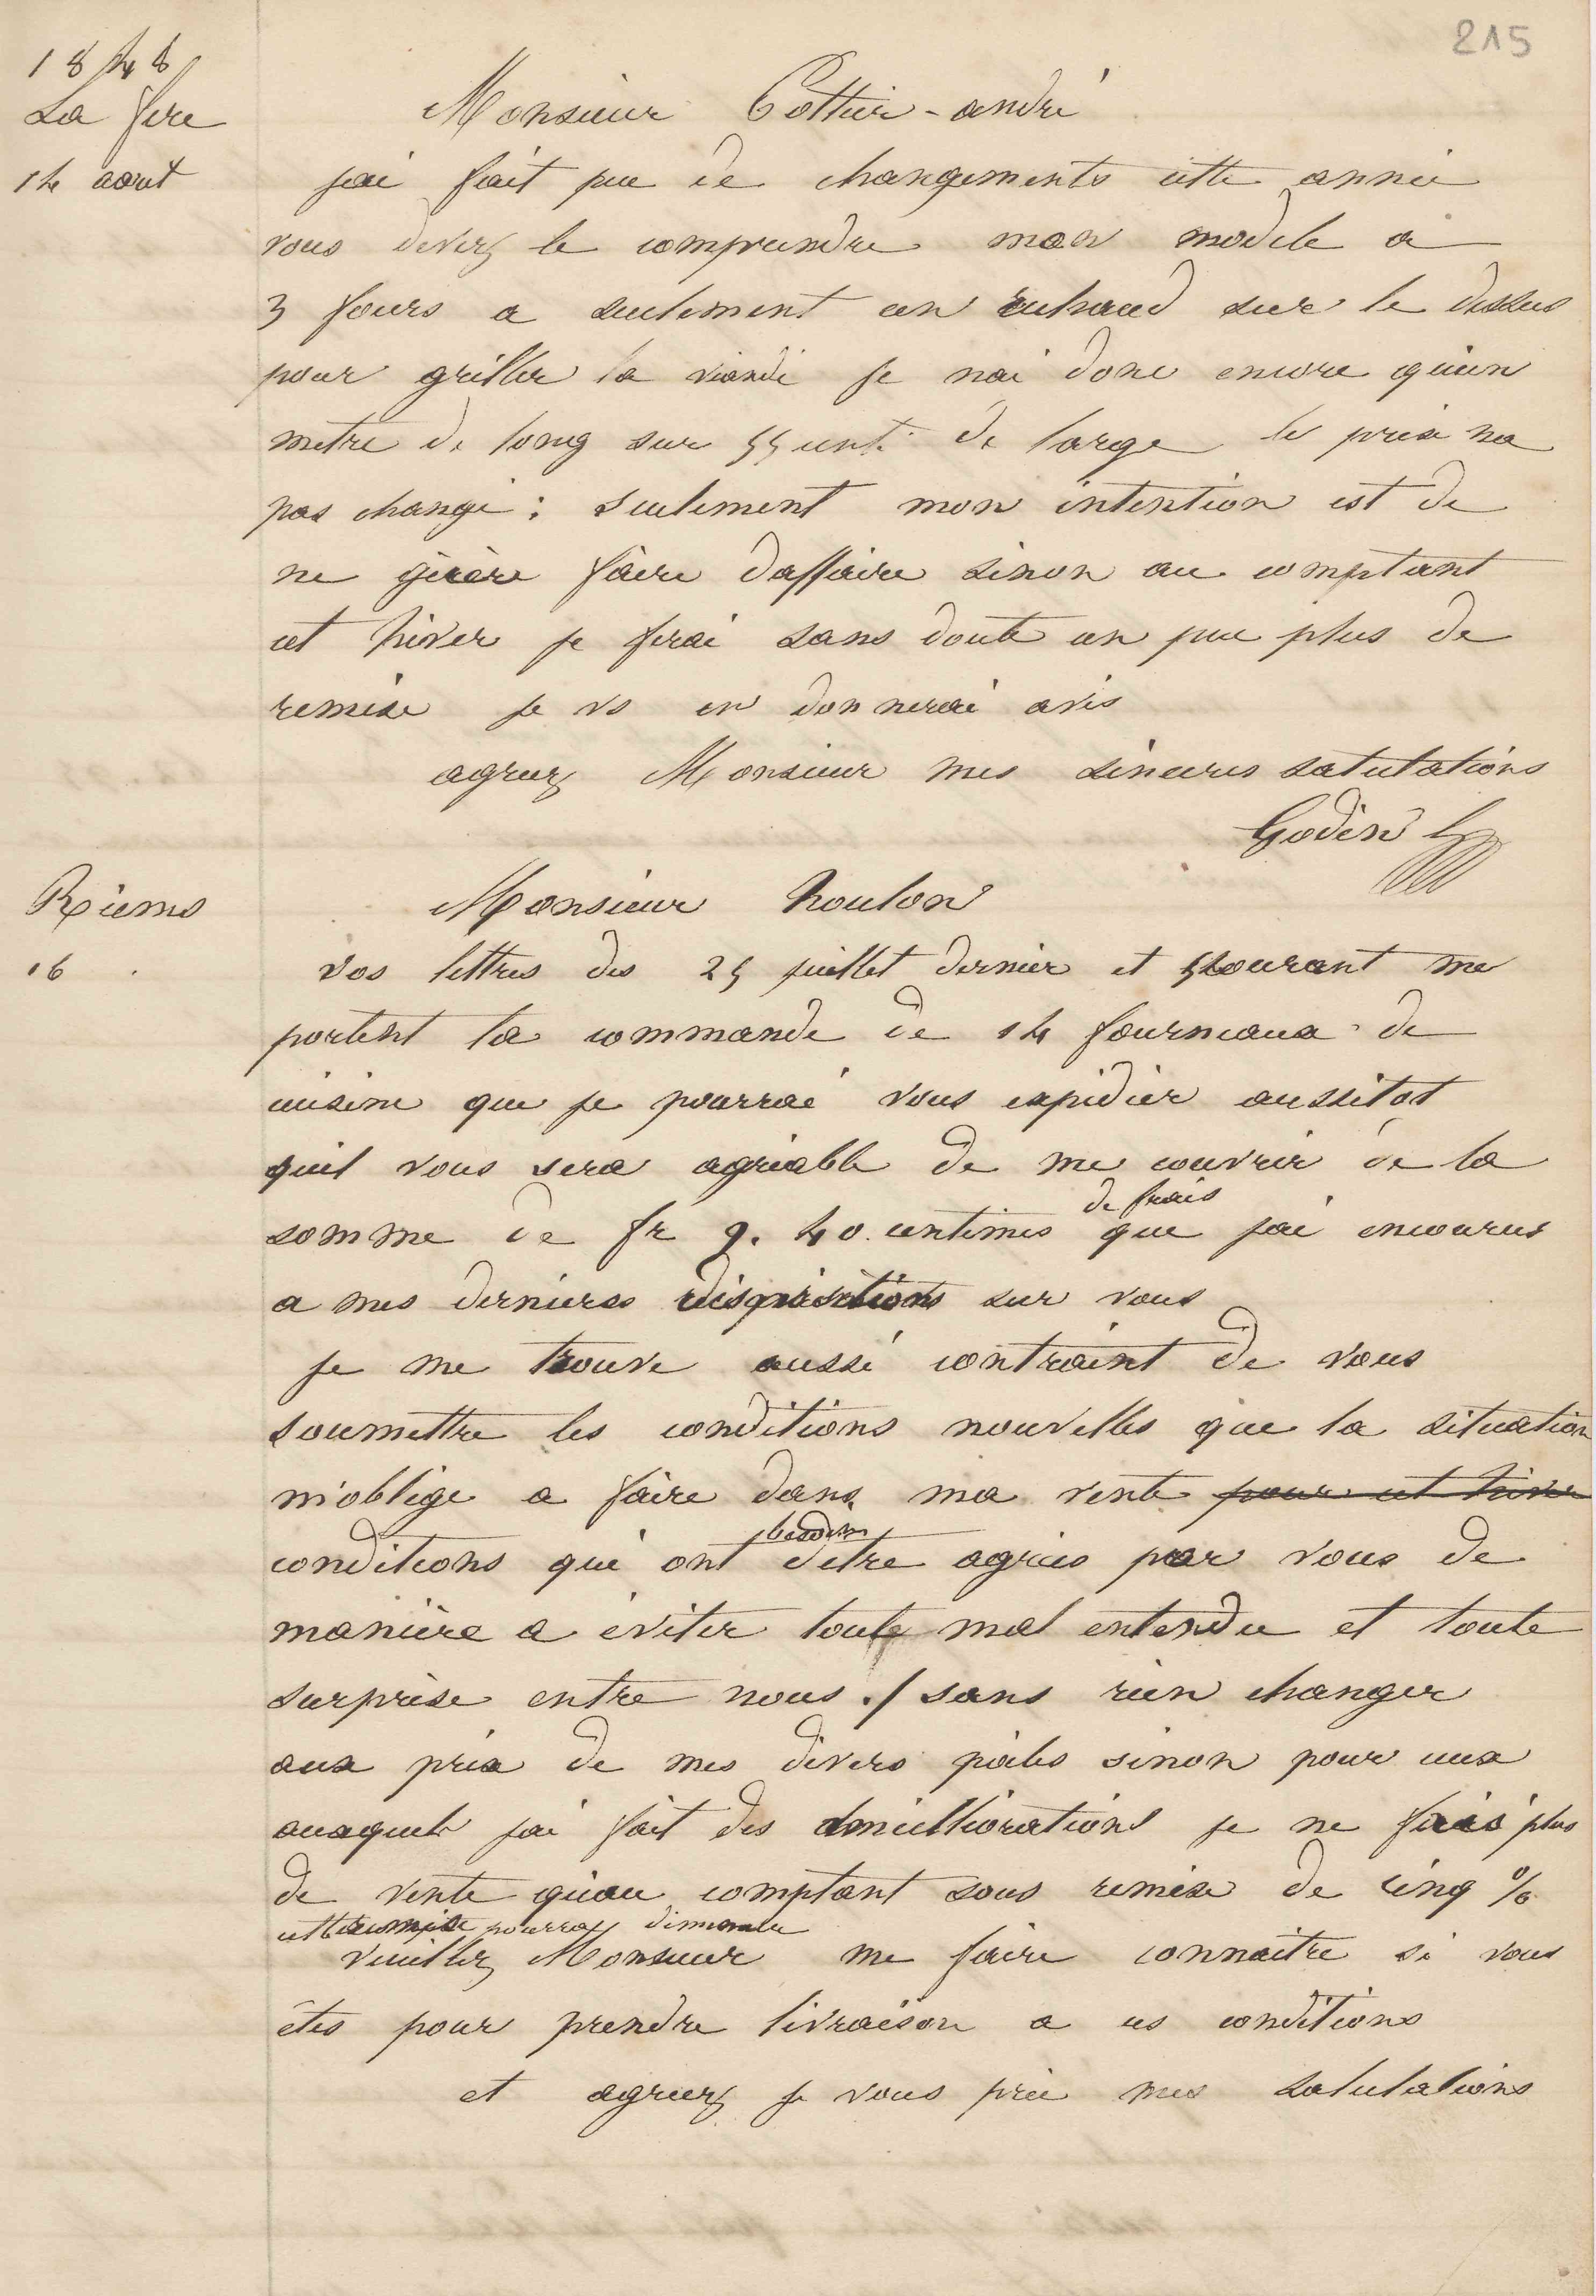 215
1848
La fere
14 aout
Monsieur Cottier-andré
jai fait peu de changements cette année
vous devez le comprendre mon modele a
3 fours a seulement un rechaud sur le dessus
pour griller la viande je nai donc encore qu'un
metre de long sur 55 cent. de large le prix na
pas changé : seulement mon intention est de
ne guère faire daffaire sinon au comptant
cet hiver je ferai sans doute un peu plus de
remise je vs en donnerai avis
agreez Monsieur mes sinceres salutations
Godin
Reims
16 .
Monsieur Houlon
vos lettres des 25 juillet dernier et 5 courant me
portent la commande de 14 fourneaux de
cuisine que je pourrai vous expédier aussitot
quil vous sera agréable de me couvrir de la
de frais
somme de fr 9. 40 centimes que jai encourus
a mes dernieres dispositions sur vous
je me trouve aussi contraint de vous
soumettre les conditions nouvelles que la situation
m'oblige a faire dans ma vente pour cet hiver
besoin
conditions qui ont detre agrées par vous de
manière a éviter toute mal entendu et toute
surprise entre nous ./ sans rien changer
aux prix de mes divers poëles sinon pour ceux
auxquels jai fait des améliorations je ne fais plus
de vente qu'au comptant sous remise de cinq %
cette remise pourra
veuillez Monsieur me faire connaitre si vous
êtes pour prendre livraison a ces conditions
et agreez je vous prie mes salutations